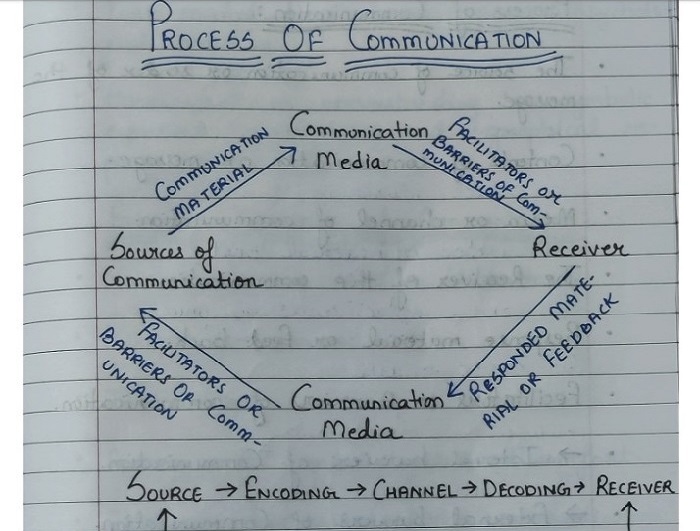 PROCESS OF COMMUNICATION
Communication
Media
COMMUNICATION
MATERIAL
FACILITATORS OR
BARRIERS OF COM-
MUNICATION
Sources of
Communication
Receiver
RESPONDED MATE-
RIAL OR FEEDBACK
Communication
Media
FACILITATORS OR
BARRIERS OF COMM-
UNICATION
SOURCE → ENCODING → CHANNEL → DECODING → RECEIVER